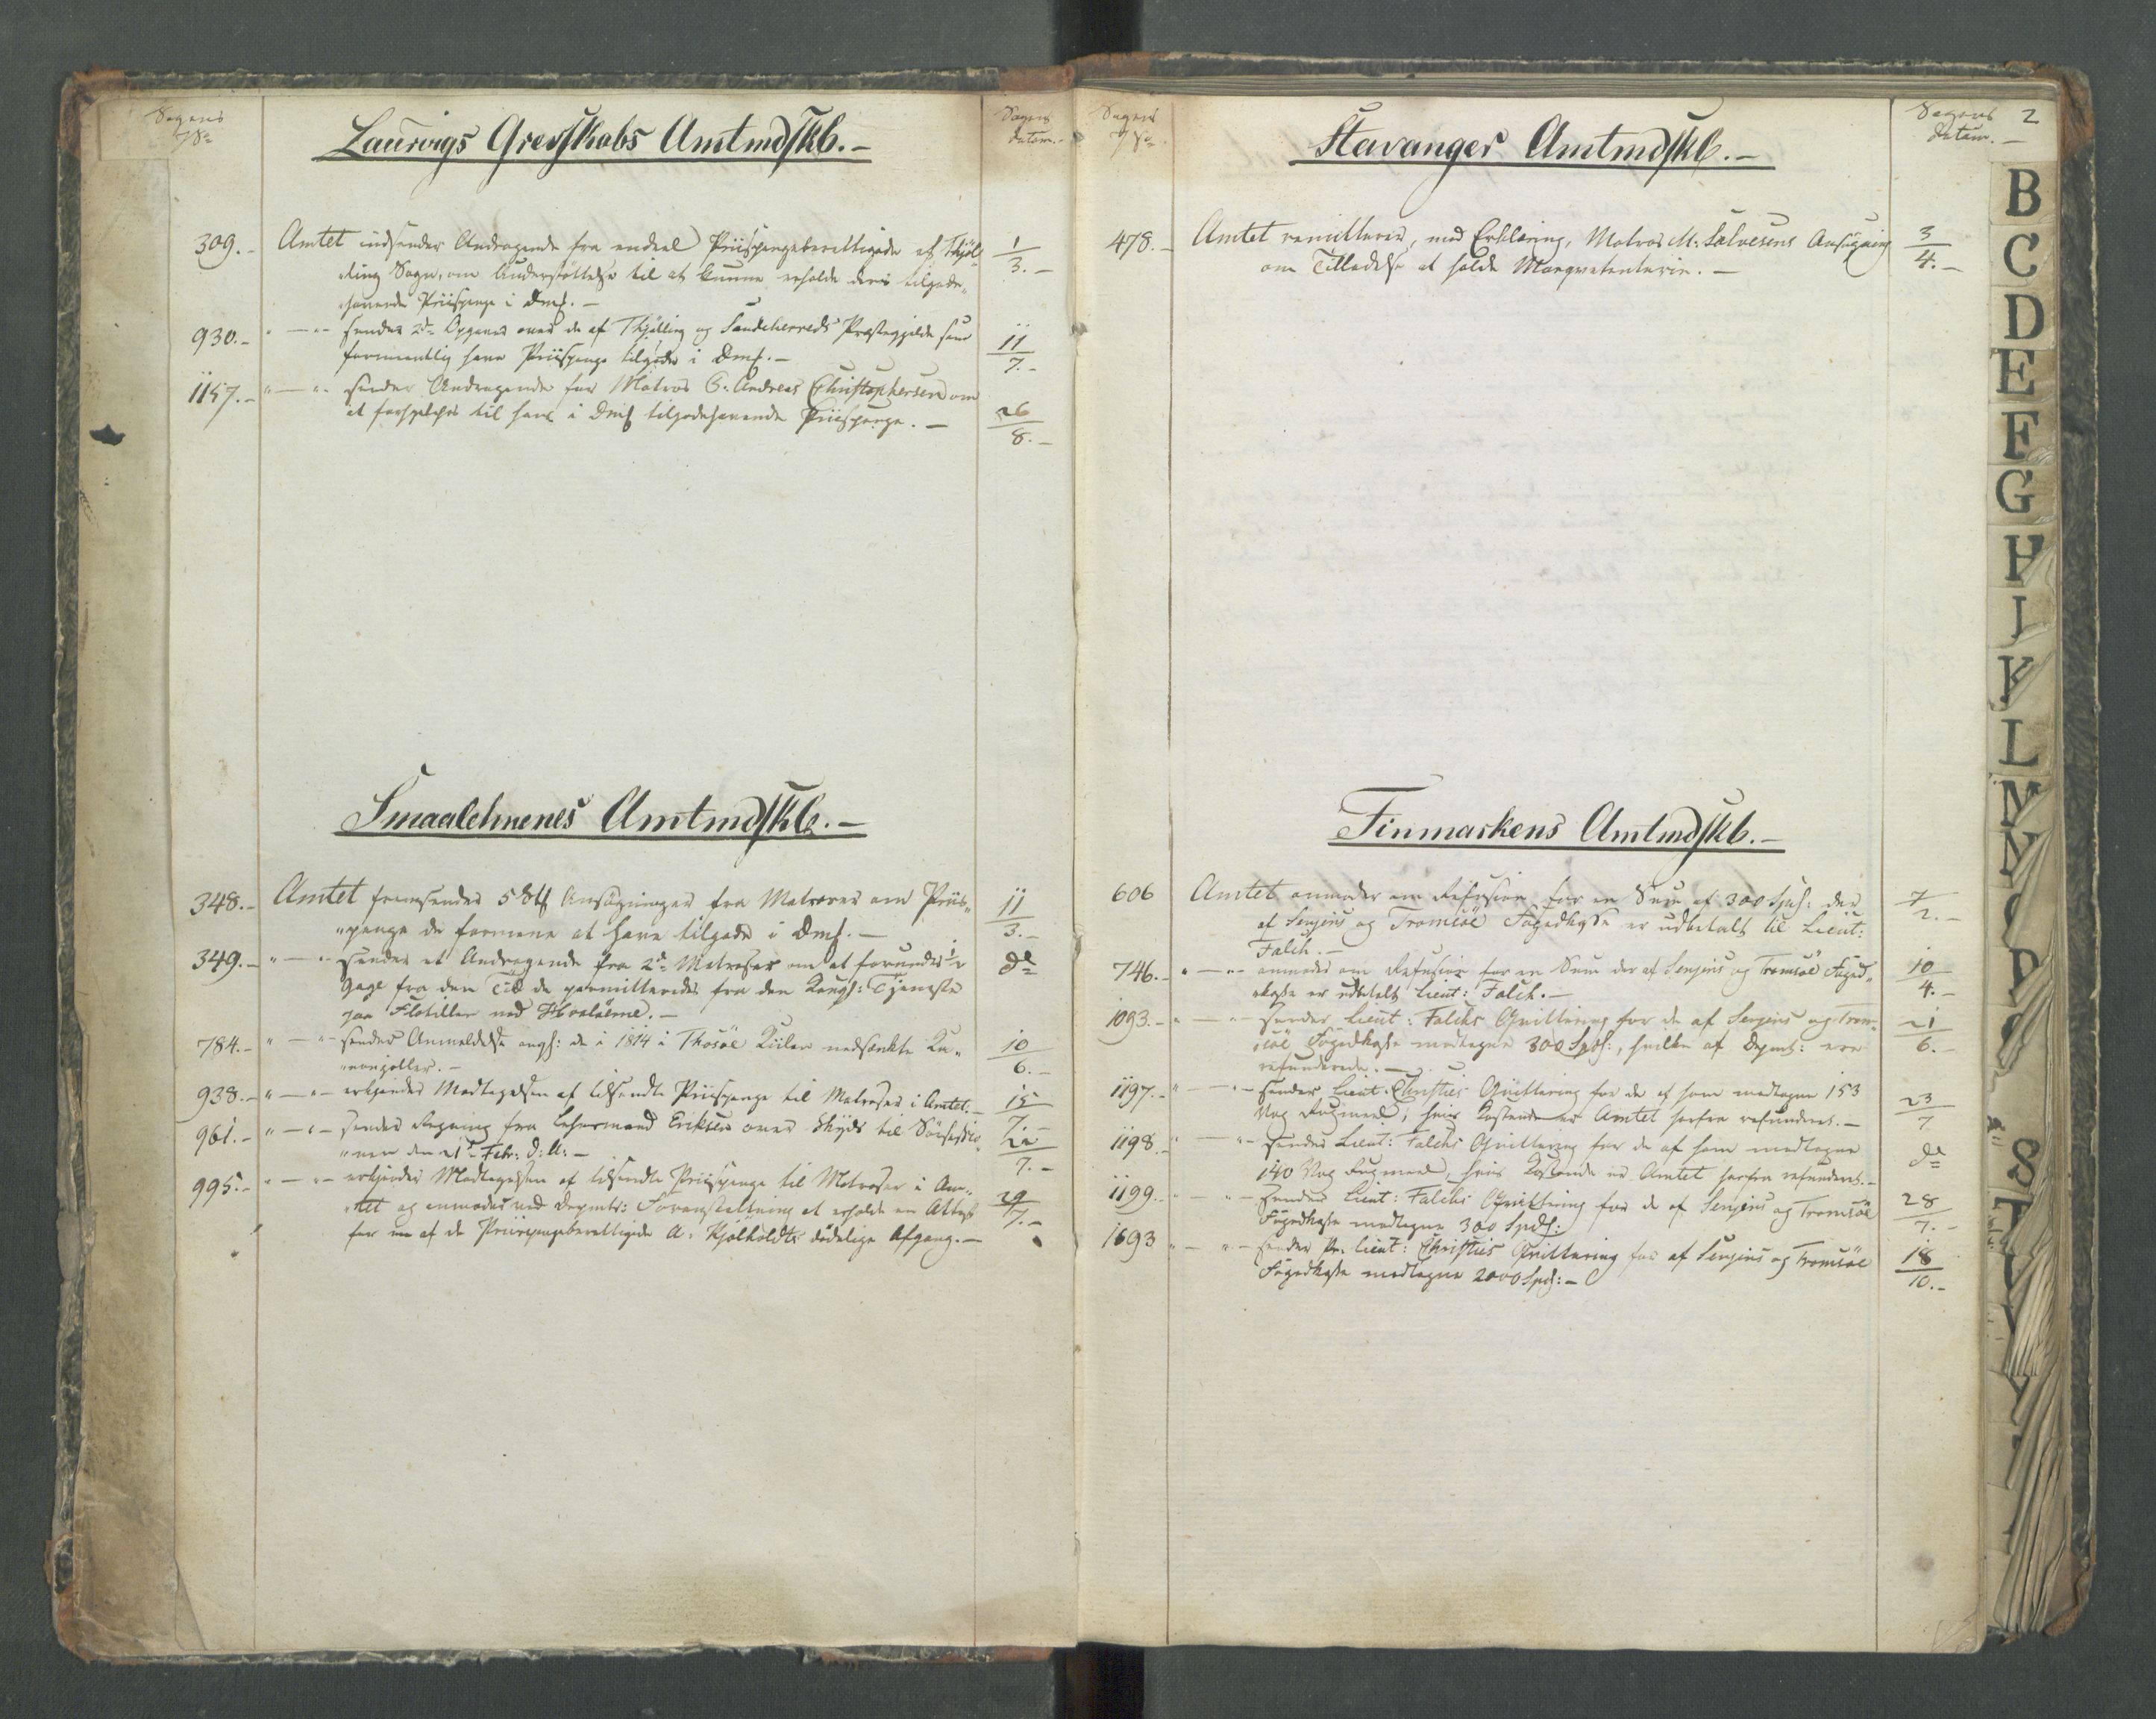 Sagens
No
Laurvigs Grevskabs Amtmdskb.-
Sagens
Datum.-
309.- Amtet indsender Andragende fra endeel Priispengeberettigede af Thjöl- 1/3.-
"ling Sogn, om Understöttelse til at kunne erholde deres tilgode"
"havende Priispenge i Dmk.-
930.- " — " - sender 2de Opgaver over de af Thjölling og Sandeherreds Præstegjelde som 11/7.-
formeentlig have Priispenge tilgode i Dmk.-
1157.- " — " - sender Andragende fra Matros C. Andreas Christophersen om 26/8.-
at forhjelpes til hans i Dmk tilgodehavende Priispenge.-
Smaalehnenes Amtmdskb.-
348.- Amtet fremsender 5 Stk Ansögninger fra Matroser om Priis" 11/3.-
"penge de formene at have tilgode i Dmk.-
349.- " — " - sender et Andragende fra 2de Matroser om at forundes 1/2 do
Gage fra den Tid de permitteredes fra den Kongl: Tjeneste
paa Flotillen ved Hvalöerne.-
784.- " — " - sender Anmeldelse angl: de i 1814 i Thosöe Kiilen nedsænkte Ka" 10/6.-
"nonjoller.-
938.- " — " - erkjender Modtagelsen af tilsendte Priispenge til Matroser i Amtet.- 15/7.-
961.- " — " - sender Regning fra Lehnsmand Eriksen over Skyds til Söesessio" 22/7.-
"nen den 21de Febr: d: A:-
995.- " — " - erkjender Modtagelsen af tilsendte Priispenge til Matroser i Am" 29/7.-
"tet og anmoder ved Depmts: Foranstaltning at erholde en Attest
for en af de Priispengeberettigede A. Kjölholdts dödelige Afgang.-
Sagens
No
Stavanger Amtmdskb.-
Sagens
Datum.-
2
478.- Amtet remitterer, med Erklæring, Matros M. Salvesens Ansögning 3/4.-
om Tilladelse at holde Marqvetenterie.-
Finmarkens Amtmdskb.-
606 Amtet anmoder om Refusion for en Sum af 300 Spd: der 7/2.-
af Senjens og Tromsöe Fogedkasse er udbetalt til Lieut:
Falch.-
746.- " — " - anmoder om Refusion for en Sum der af Senjens og Tromsöe Foged" 10/4.-
"kasse er udbetalt Lieut: Falch.-
1093.- " — " - sender Lieut: Falchs Qvittering for de af Senjens og Trom" 21/6.-
"söe Fogedkasse modtagne 300 Spd:, hvilke af Depmt: ere
refunderede.-
1197.- " — " - sender Lieut. Christies Qvittering for de af ham modtagne 153 23/7
Vog Rugmeel, hvis Kostende er Amtet herfra refunderet.-
1198.- " — " - sender Lieut: Falchs Qvittering for de af ham modtagne do
140 Vog Rugmeel, hvis Kostende er Amtet herfra refunderet.-
1199.- " — " - sender Lieut: Falchs Qvittering for de af Senjens og Tromsöe 28/7.-
Fogedkasse modtagne 300 Spd:
1693 " — " - sender Pr. Lieut: Christies Qvittering for af Senjens og Tromsöe 18/10.-
Fogedkasse modtagne 2000 Spd:-
B
C
D
E
F
G
H
I
K
L
M
N
O
P
S
T